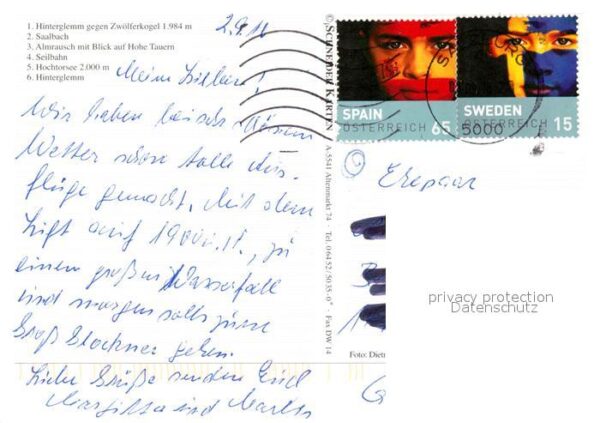 1. Hinterglemm gegen Zwölferkogel 1.984 m
2. Saalbach
3. Almrausch mit Blick auf Hohe Tauern
4. Seilbahn
5. Hochtorsee 2.000 m
6. Hinterglemm
Meine Lieben!
Wir haben bei
Wetter schon tolle Aus-
flüge gemacht. Mit dem
Lift auf 1900 m, zu
einem großen Wasserfall
und morgen solls zum
Groß Glockner gehen.
Liebe Grüße senden Euch
und
© SCHNEIDER KARTEN · A-5541 Altenmarkt 74 Tel. 06452/5035-0* · Fax DW 14
SPAIN
ÖSTERREICH 65
SWEDEN
ÖSTERREICH 15
5000
Ehepaar
privacy protection
Datenschutz
Foto: Dietr